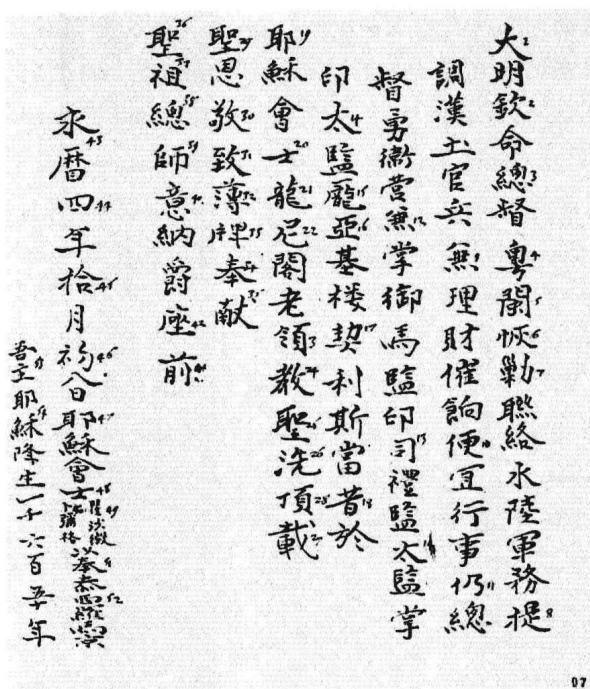 大明欽命總督粵閩恢勦聯絡水陸軍務提
調漢土官兵無理財催餉便宜行事仍總
督勇衛營無掌御馬監印司禮監太監掌
印太監龐亞基楼契利斯當昔於
耶穌會士龍尼閣老領教聖洗頂載
聖恩敬致薄奉献
聖祖總師意納爵座前
永暦四年拾月初八日耶穌會士卜彌格以奉泰西
吾主耶穌降生一千六百五十年
97